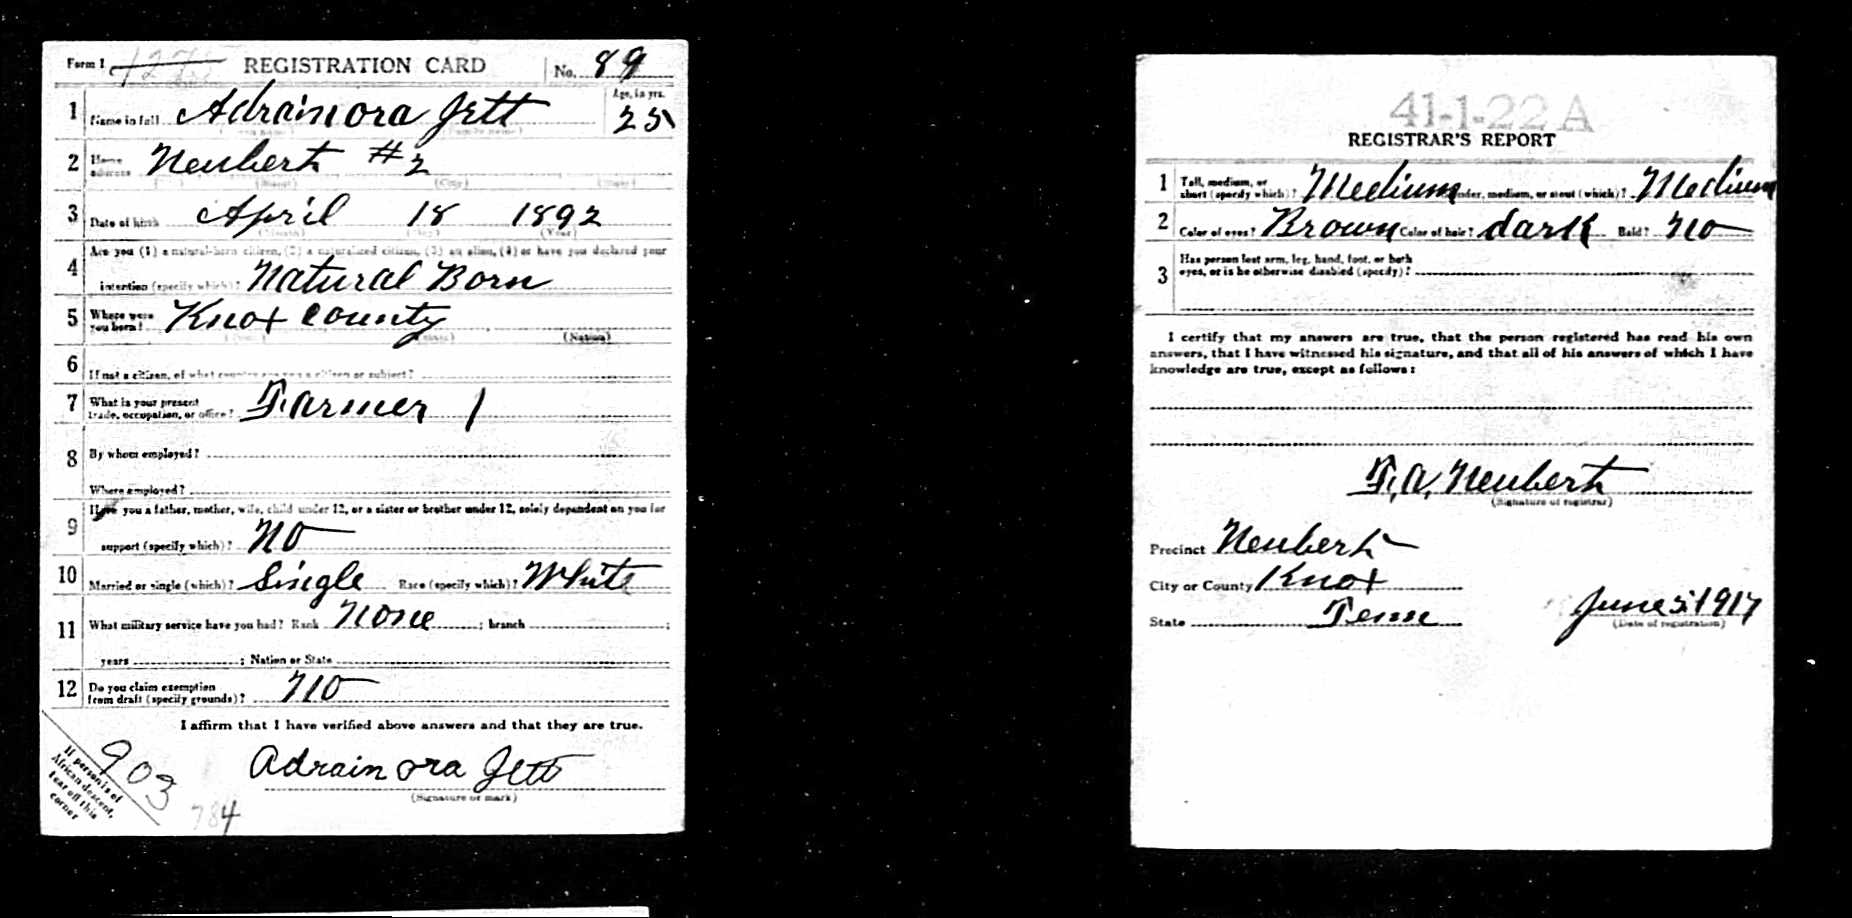 Form 1 REGISTRATION CARD No. 89
1 Name in full Adrain ora Jett Age, in yrs. 25
2 Home address Neubert #2
(Street) (City) (State)
3 Date of birth April 18 1892
(Month) (Day) (Year)
4 Are you (1) a natural-born citizen, (2) a naturalized citizen, (3) an alien, (4) or have you declared your
intention (specify which)? Natural Born
5 Where were you born? Knox County
(Town) (State) (Nation)
6 If not a citizen, of what country are you a citizen or subject?
7 What is your present trade, occupation, or office? Farmer 1
8 By whom employed?
Where employed?
9 Have you a father, mother, wife, child under 12, or a sister or brother under 12, solely dependent on you for
support (specify which)? No
10 Married or single (which)? Single Race (specify which)? White
11 What military service have you had? Rank None ; branch ;
years ; Nation or State
12 Do you claim exemption from draft (specify grounds)? No
I affirm that I have verified above answers and that they are true.
Adrain ora Jett
(Signature or mark)
If person is of
African descent,
tear off this
corner
903
784
41-1-22 A
REGISTRAR'S REPORT
1 Tall, medium, or short (specify which)? Medium Slender, medium, or stout (which)? Medium
2 Color of eyes? Brown Color of hair? dark Bald? No
3 Has person lost arm, leg, hand, foot, or both
eyes, or is he otherwise disabled (specify)?
I certify that my answers are true, that the person registered has read his own
answers, that I have witnessed his signature, and that all of his answers of which I have
knowledge are true, except as follows:
F. A. Neubert
(Signature of registrar)
Precinct Neubert
City or County Knox
State Tenn June 5 1917
(Date of registration)